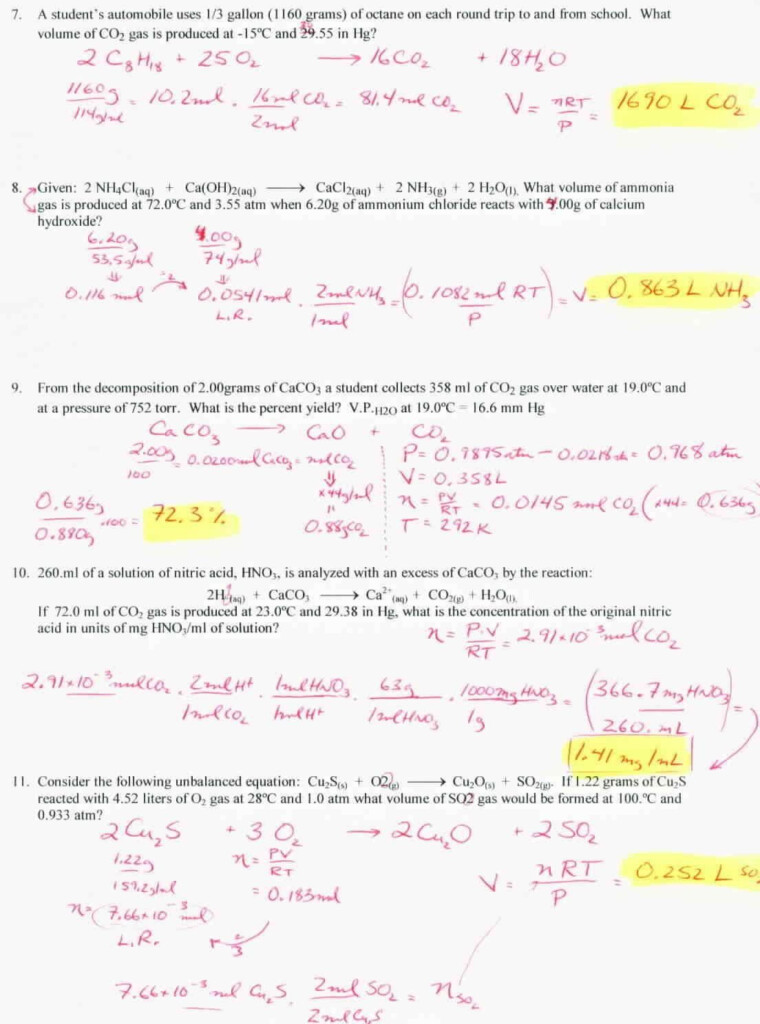 7. A student's automobile uses 1/3 gallon (1160 grams) of octane on each round trip to and from school. What
volume of CO₂ gas is produced at -15ºC and 29.55 in Hg?
2 C₈H₁₈ + 25 O₂ → 16CO₂ + 18H₂O
1160g / 114g/mol = 10.2mol · 16mol CO₂ / 2mol = 81.4 mol CO₂ V = nRT / P = 1690 L CO₂
8. Given: 2 NH₄Cl(aq) + Ca(OH)₂(aq) → CaCl₂(aq) + 2 NH₃(g) + 2 H₂O(l). What volume of ammonia
gas is produced at 72.0ºC and 3.55 atm when 6.20g of ammonium chloride reacts with 4.00g of calcium
hydroxide?
6.20g / 53.5g/mol 4.00g / 74g/mol
0.116 mol 0.0541mol · 2mol NH₃ / 1mol = (0.1082mol RT / P) = V = 0.863 L NH₃
L.R.
9. From the decomposition of 2.00grams of CaCO₃ a student collects 358 ml of CO₂ gas over water at 19.0ºC and
at a pressure of 752 torr. What is the percent yield? V.P.H2O at 19.0ºC = 16.6 mm Hg
CaCO₃ → CaO + CO₂
2.00g / 100 = 0.0200mol CaCO₃ = mol CO₂ P = 0.9895atm - 0.0218atm = 0.968 atm
x 44g/mol V = 0.358L
0.636g / 0.880g ·100 = 72.3% = 0.88g CO₂ n = PV / RT = 0.0145 mol CO₂ (x44 = 0.636g
T = 292K
10. 260.ml of a solution of nitric acid, HNO₃, is analyzed with an excess of CaCO₃ by the reaction:
2H⁺(aq) + CaCO₃ → Ca²⁺(aq) + CO₂(g) + H₂O(l).
If 72.0 ml of CO₂ gas is produced at 23.0ºC and 29.38 in Hg, what is the concentration of the original nitric
acid in units of mg HNO₃/ml of solution?
n = P·V / RT = 2.91x10⁻³ mol CO₂
2.91x10⁻³ mol CO₂ · 2mol H⁺ / 1mol CO₂ · 1mol HNO₃ / 1mol H⁺ · 63g / 1mol HNO₃ · 1000mg HNO₃ / 1g = (366.7mg HNO₃ / 260. mL) =
1.41 mg/mL
11. Consider the following unbalanced equation: Cu₂S(s) + O2(g) → Cu₂O(s) + SO₂(g). If 1.22 grams of Cu₂S
reacted with 4.52 liters of O₂ gas at 28ºC and 1.0 atm what volume of SO2 gas would be formed at 100.ºC and
0.933 atm?
2Cu₂S + 3 O₂ → 2Cu₂O + 2SO₂
1.22g / 159.2g/mol n = PV / RT V = nRT / P = 0.252 L SO₂
= 0.183mol
n = 7.66x10⁻³ mol
L.R. 2/3
7.66x10⁻³ mol Cu₂S · 2mol SO₂ / 2mol Cu₂S = n SO₂